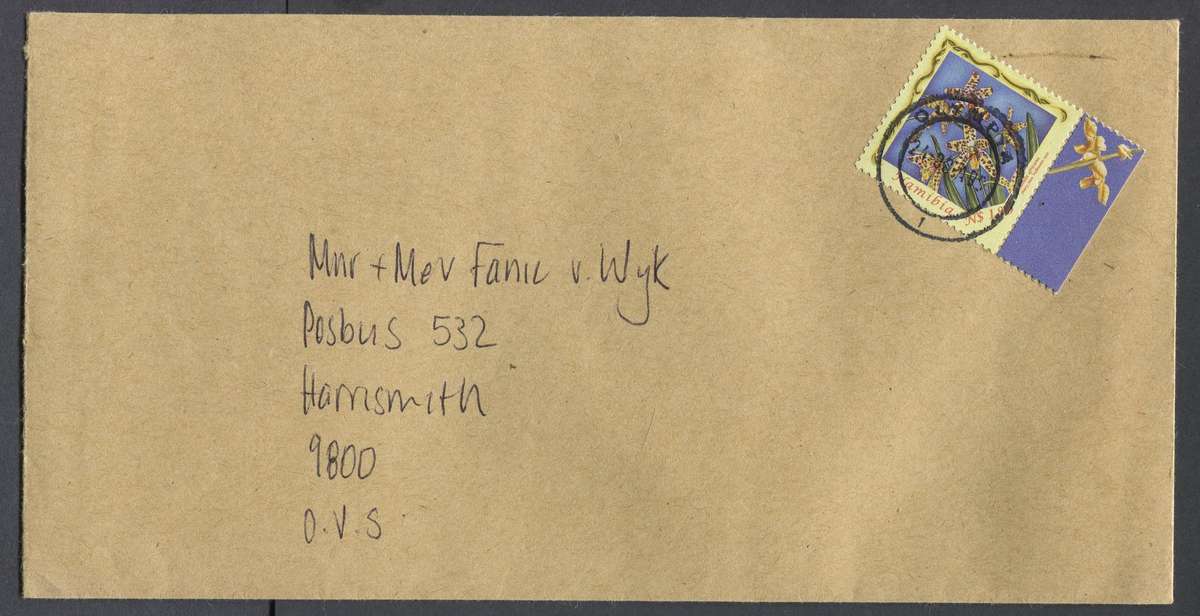 Namibia N$ 1.
OLYMPIA
Mnr + Mev Fanie v. Wyk
Posbus 532
Harrismith
9800
O.V.S